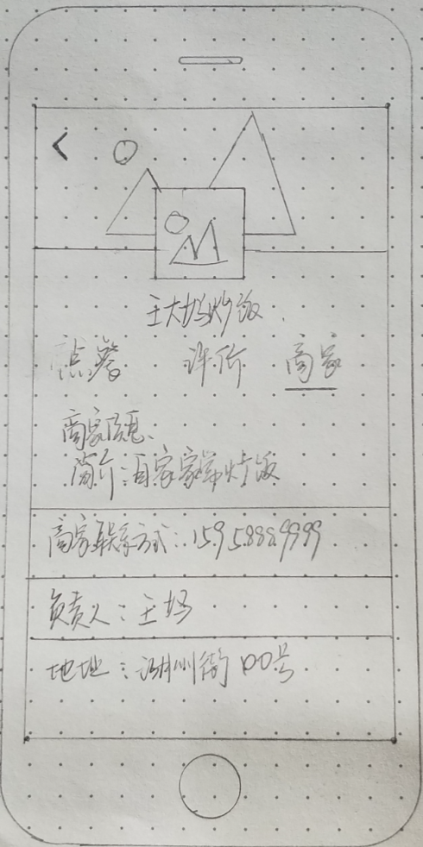 王大妈炒饭
点餐 评价 商家
商家信息
简介:自家家常炒饭
商家联系方式:15958889999
负责人:王妈
地址:湖州街00号